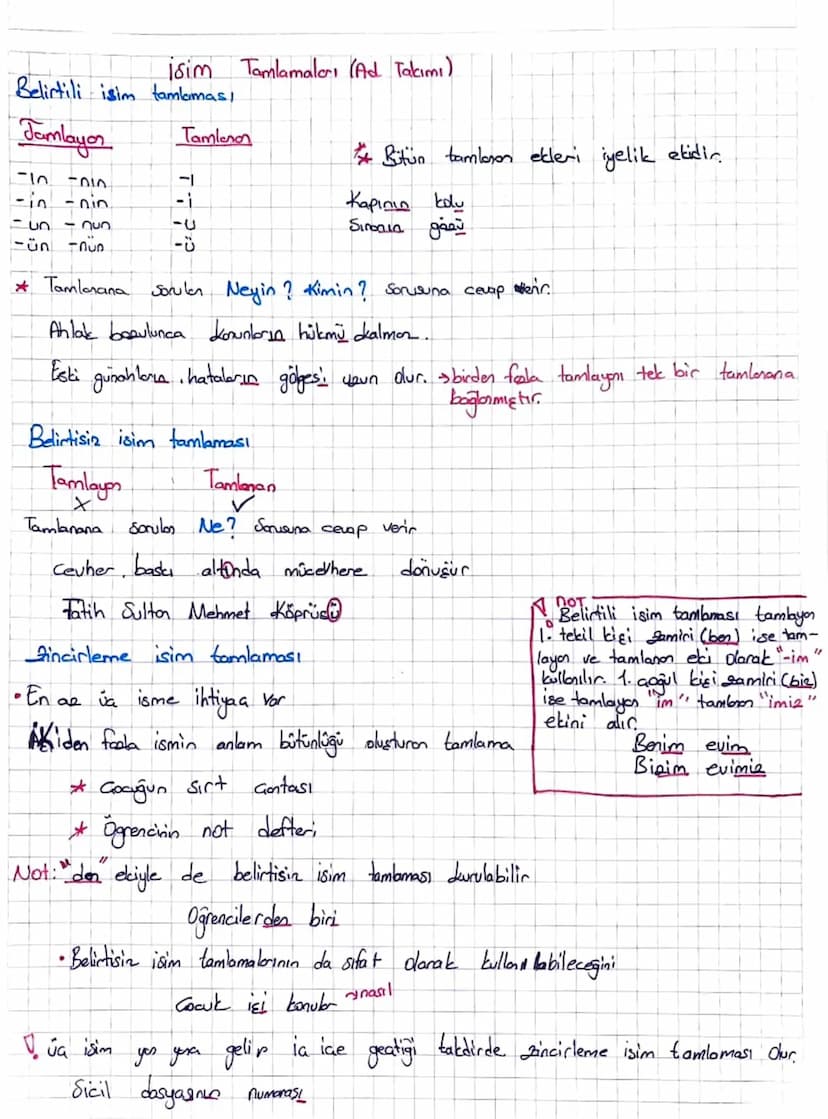 isim Tamlamaları (Ad Takımı)
Belirtili isim tamlaması
Tamlayan Tamlanan
-ın -nın -ı
-in -nin -i
-un -nun -u
-ün -nün -ü
** Bütün tamlanan ekleri iyelik ekidir.
Kapının kolu
Sıranın gözü
* Tamlanana sorulan Neyin? Kimin? sorusuna cevap verir.
Ahlak bozulunca kanunların hükmü kalmaz.
Eski günahların, hataların gölgesi uzun olur. → birden fazla tamlayanı tek bir tamlanana
bağlanmıştır.
Belirtisiz isim tamlaması
Tamlayan Tamlanan
X ✓
Tamlanana sorulan Ne? Sorusuna cevap verir
Cevher, baskı altında mücevhere dönüşür
Fatih Sultan Mehmet Köprüsü
Zincirleme isim tamlaması
• En az üç isme ihtiyaç var
İkiden fazla ismin anlam bütünlüğü oluşturan tamlama
* Çocuğun sırt çantası
* Öğrencinin not defteri
! NOT
Belirtili isim tamlaması tamlayan
1. tekil kişi zamiri (ben) ise tam-
layan ve tamlanan eki olarak "-im"
kullanılır. 1. çoğul kişi zamiri (biz)
ise tamlayan "im" tamlanan "imiz"
ekini alır.
Benim evim
Bizim evimiz
Not: "den" ekiyle de belirtisiz isim tamlaması kurulabilir
Öğrencilerden biri
• Belirtisiz isim tamlamalarının da sıfat olarak kullanılabileceğini
Çocuk işi konular → nasıl
! üç isim yan yana gelip iç içe geçtiği takdirde zincirleme isim tamlaması olur.
Sicil dosyasının numarası